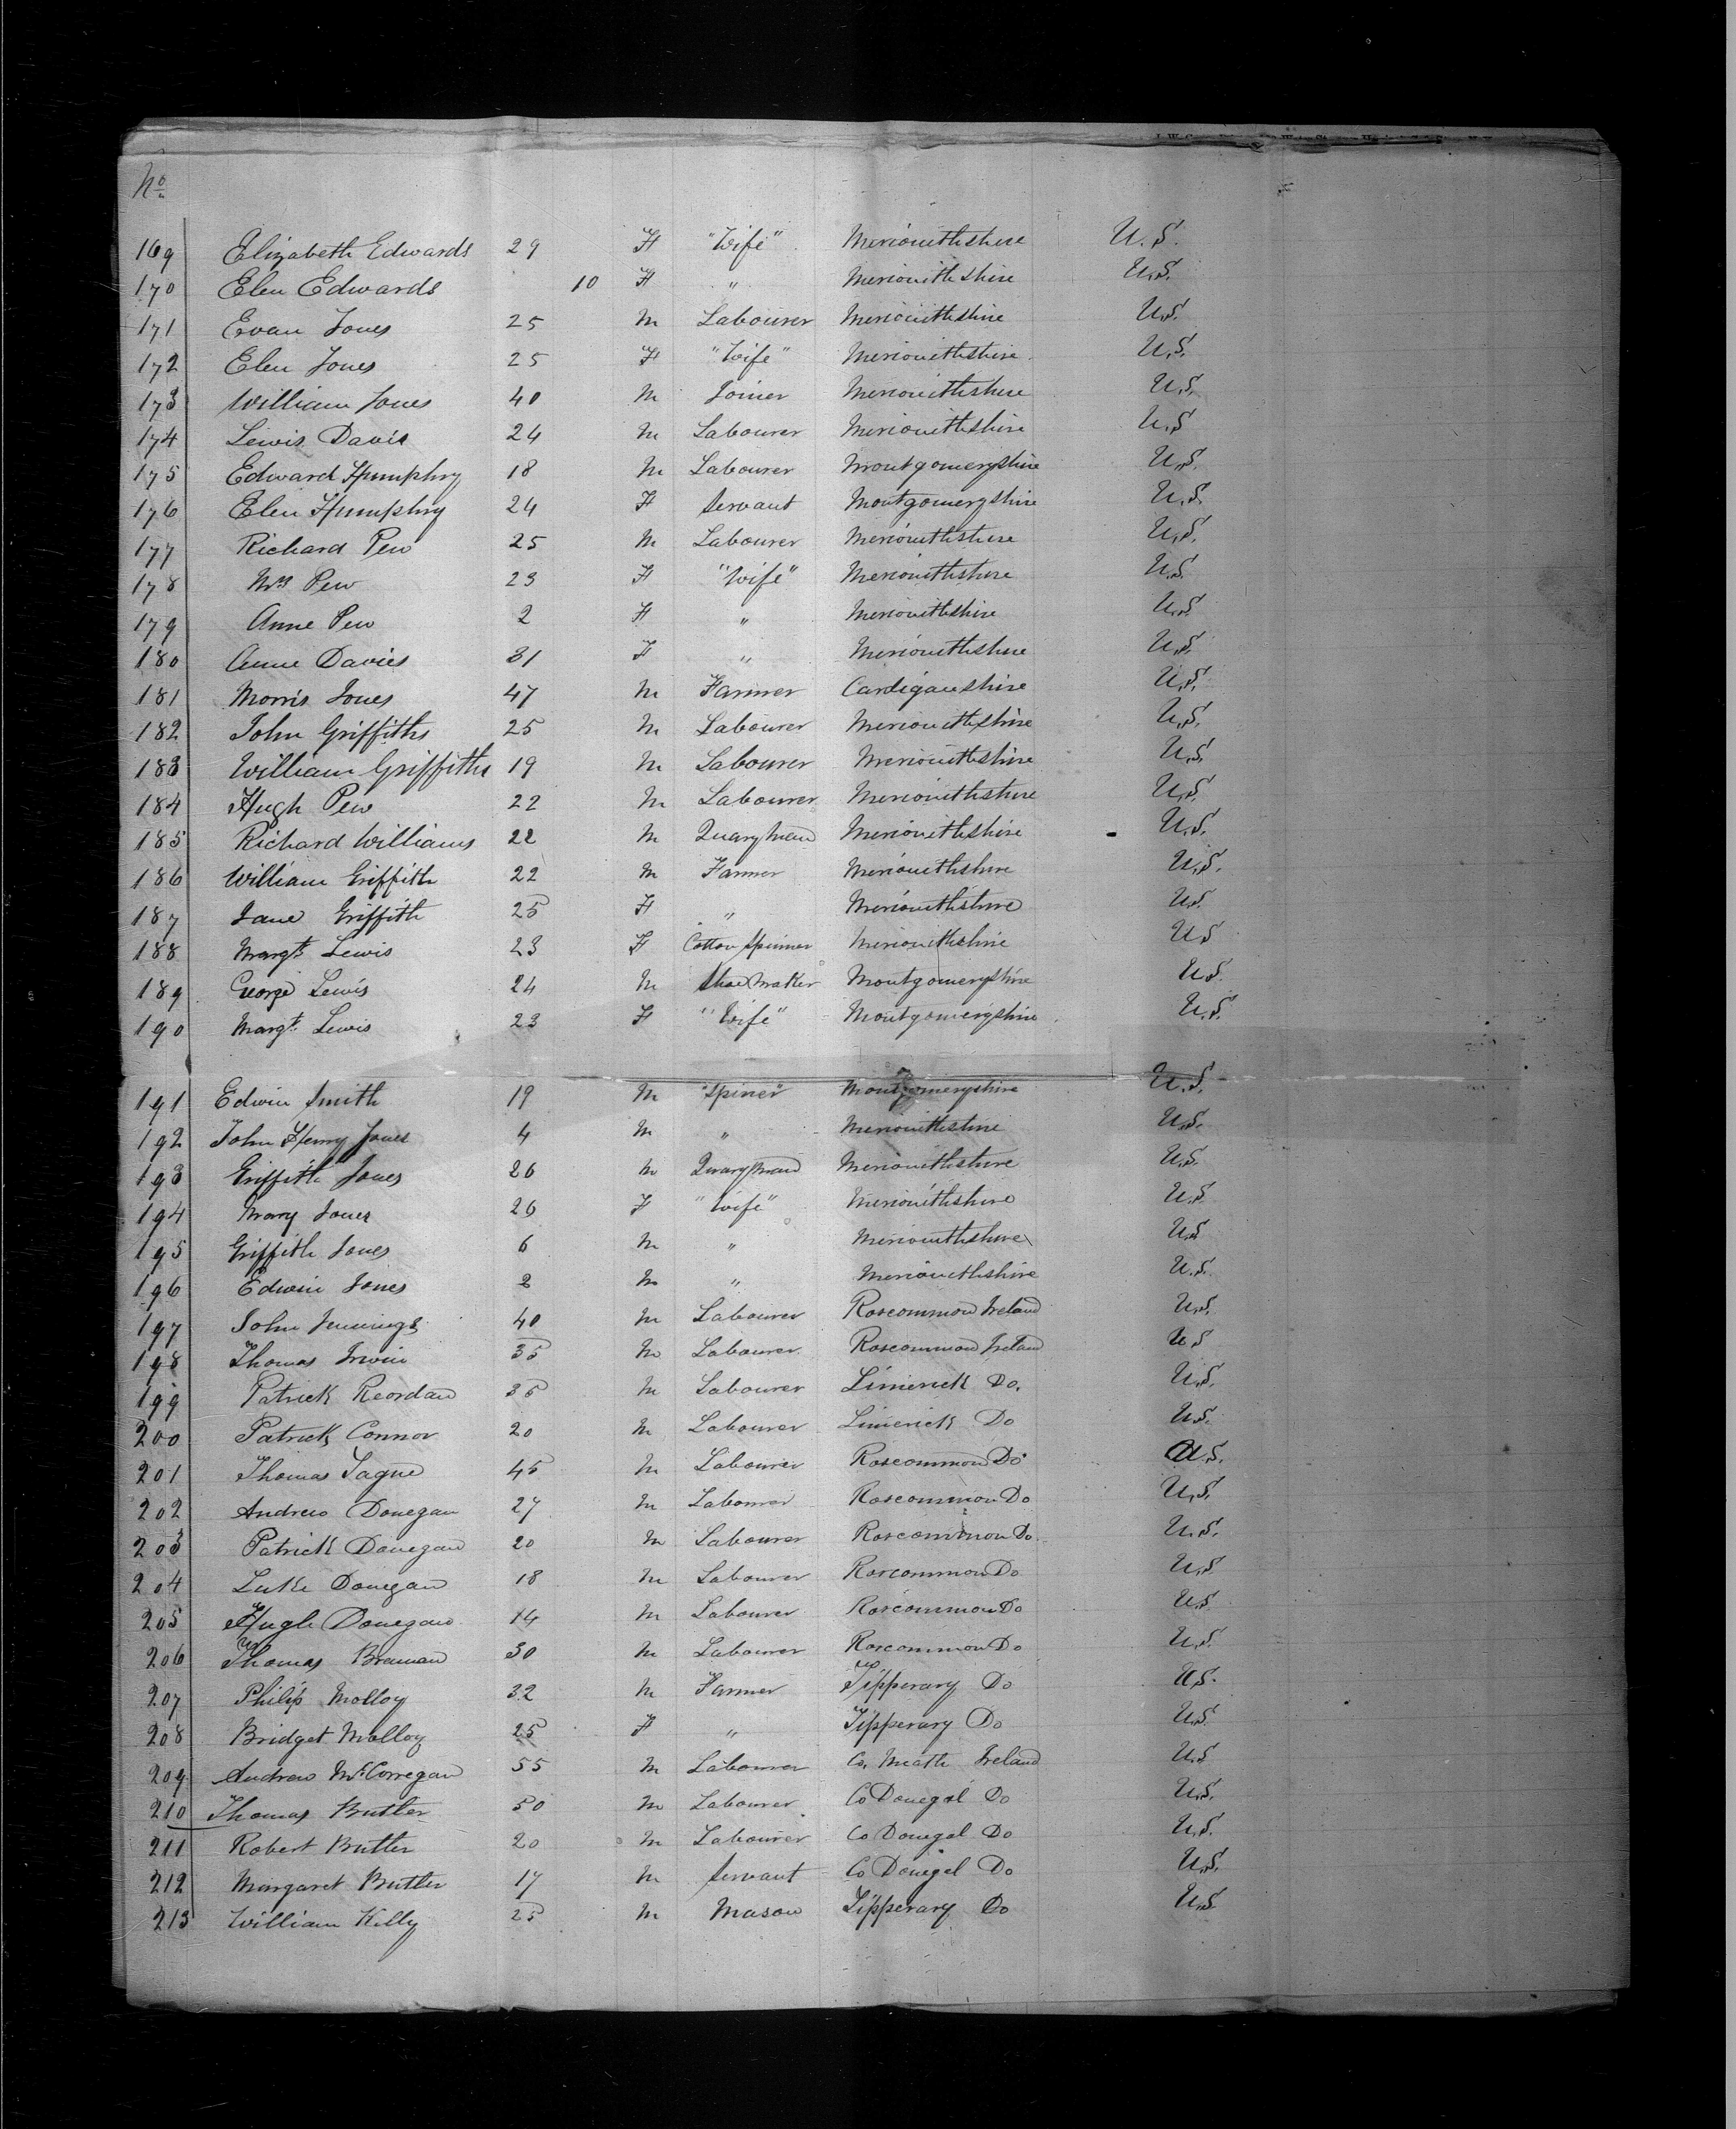 No
169 Elizabeth Edwards 29 F "Wife" Merionithshire U.S.
170 Elen Edwards 10 F " Merionithshire U.S.
171 Evan Jones 25 M Labourer Merionithshire U.S.
172 Elen Jones 25 F "Wife" Merionithshire U.S.
173 William Jones 40 M Joiner Merionithshire U.S.
174 Lewis Davis 24 M Labourer Merionithshire U.S
175 Edward Humphry 18 M Labourer Montgomeryshire U.S.
176 Elen Humphry 24 F Servant Montgomeryshire U.S.
177 Richard Pew 25 M Labourer Merionithshire U.S.
178 Mrs Pew 23 F "Wife" Merionithshire U.S.
179 Anne Pew 2 F " Merionithshire U.S
180 Anne Davies 31 F " Merionithshire U.S.
181 Morris Jones 47 M Farmer Cardiganshire U.S.
182 John Griffiths 25 M Labourer Merionithshire U.S.
183 William Griffiths 19 M Labourer Merionithshire U.S.
184 Hugh Pew 22 M Labourer Merionithshire U.S.
185 Richard Williams 22 M Quaryman Merionithshire U.S.
186 William Griffith 22 M Farmer Merionithshire U.S.
187 Jane Griffith 25 F " Merionithshire U.S
188 Margt Lewis 23 F Cotton Spinner Merionithshire U.S
189 George Lewis 24 M Shoe Maker Montgomeryshire U.S.
190 Margt. Lewis 23 F "Wife" Montgomeryshire U.S.
191 Edwin Smith 19 M "Spiner" Montgomeryshire U.S.
192 John Henry Jones 4 M " Merionithshire U.S.
193 Griffith Jones 26 M Quaryman Merionithshire U.S.
194 Mary Jones 26 F "Wife" Merionithshire U.S
195 Griffith Jones 6 M " Merionithshire U.S
196 Edwin Jones 2 M " Merionithshire U.S.
197 John Jennings 40 M Labourer Roscommon Ireland U.S.
198 Thomas Irwin 35 M Labourer Roscommon Ireland U.S
199 Patrick Reordan 35 M Labourer Limerick Do. U.S.
200 Patrick Connor 20 M Labourer Limerick Do U.S.
201 Thomas 45 M Labourer Roscommon Do U.S.
202 Andrew Donegan 27 M Labourer Roscommon Do U.S.
203 Patrick Donegan 20 M Labourer Roscommon Do. U.S.
204 Luke Donegan 18 M Labourer Roscommon Do U.S
205 Hugh Donegan 14 M Labourer Roscommon Do U.S
206 Thomas Brannan 30 M Labourer Roscommon Do U.S.
207 Philip Molloy 32 M Farmer Tipperary Do U.S.
208 Bridget Molloy 25 F " Tipperary Do U.S.
209 Andrew McCorregan 55 M Labourer Co. Meath Ireland U.S
210 Thomas Butler 50 M Labourer Co Donegal Do U.S.
211 Robert Butler 20 M Labourer Co Donegal Do U.S.
212 Margaret Butler 17 M Servant Co Donegal Do U.S.
213 William Kelly 25 M Mason Tipperary Do U.S